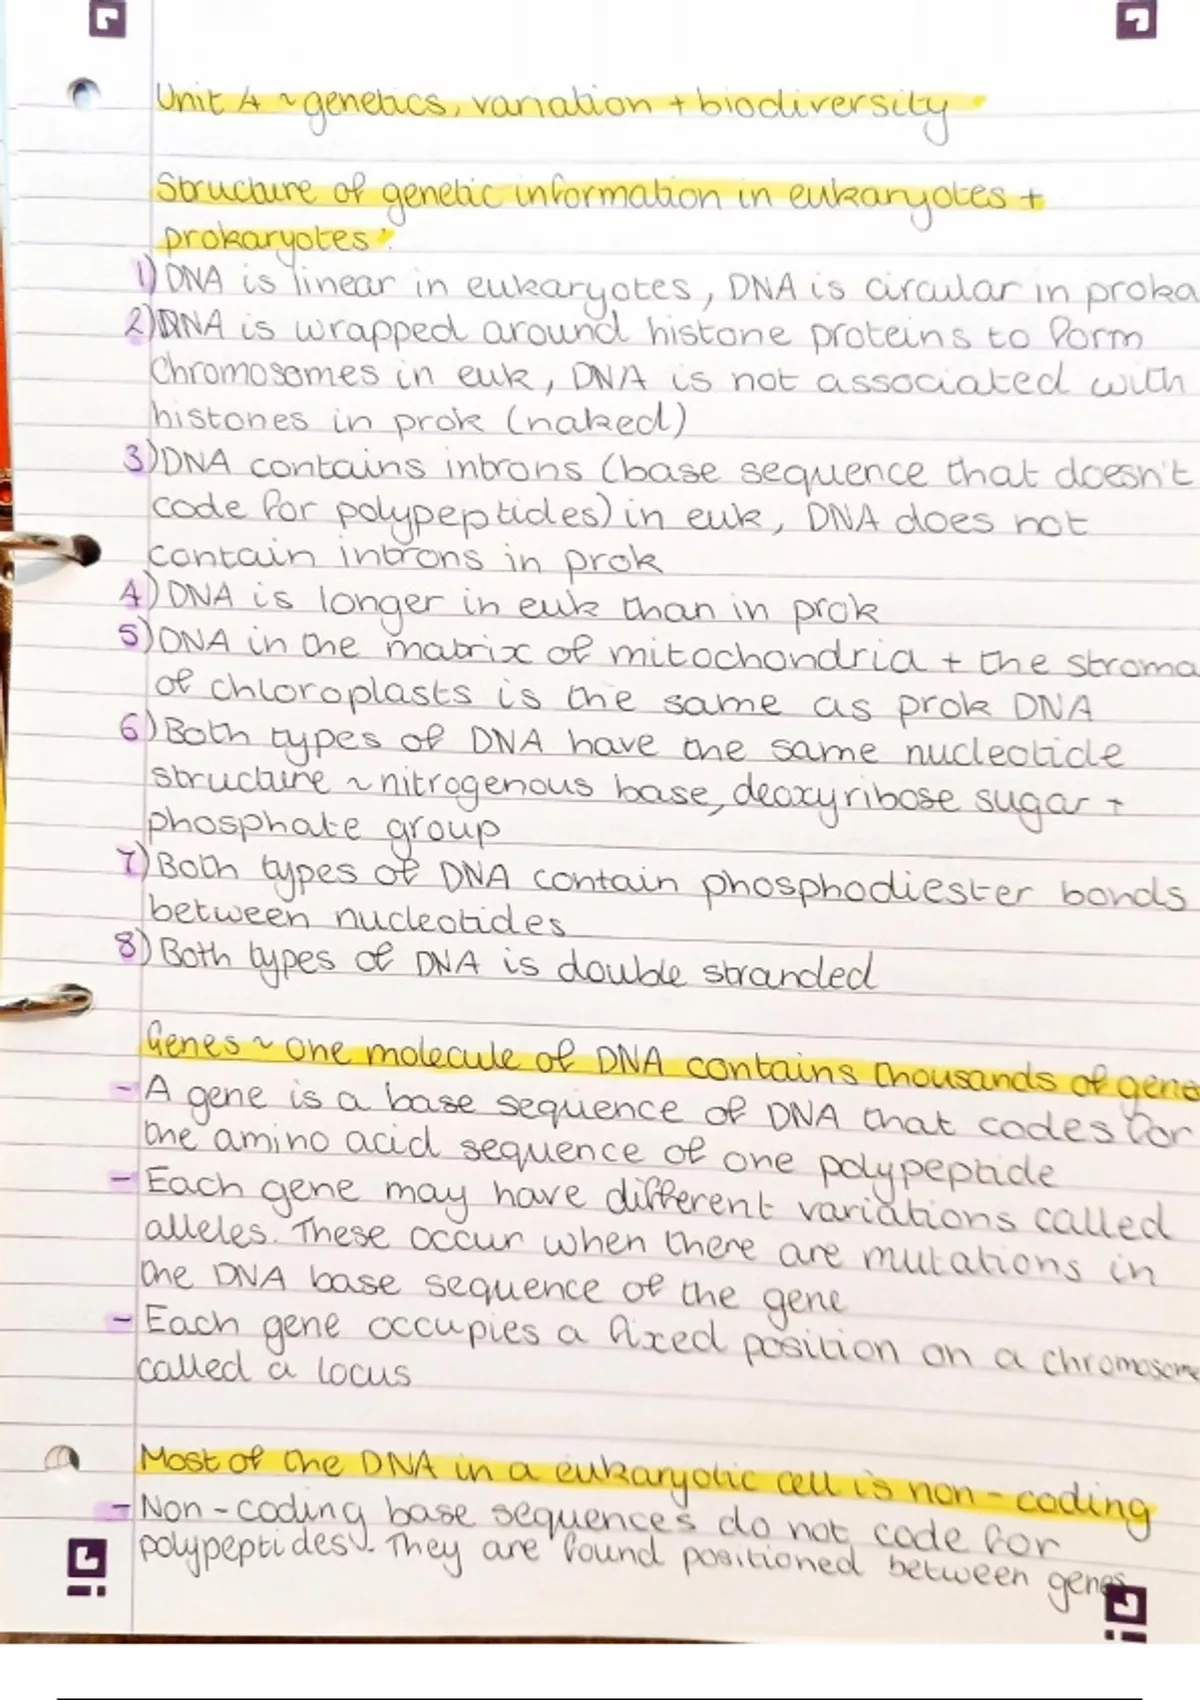 Unit 4 ~ genetics, variation + biodiversity
Structure of genetic information in eukaryotes +
prokaryotes:
1) DNA is linear in eukaryotes, DNA is circular in proka
2) DNA is wrapped around histone proteins to form
chromosomes in euk, DNA is not associated with
histones in prok (naked)
3) DNA contains introns (base sequence that doesn't
code for polypeptides) in euk, DNA does not
contain introns in prok
4) DNA is longer in euk than in prok
5) DNA in the matrix of mitochondria + the stroma
of chloroplasts is the same as prok DNA
6) Both types of DNA have the same nucleotide
structure ~ nitrogenous base, deoxyribose sugar +
phosphate group
7) Both types of DNA contain phosphodiester bonds
between nucleotides
8) Both types of DNA is double stranded
Genes ~ one molecule of DNA contains thousands of genes
- A gene is a base sequence of DNA that codes for
the amino acid sequence of one polypeptide
- Each gene may have different variations called
alleles. These occur when there are mutations in
the DNA base sequence of the gene
- Each gene occupies a fixed position on a chromosome
called a locus
Most of the DNA in a eukaryotic cell is non-coding
- Non-coding base sequences do not code for
polypeptides. They are found positioned between genes